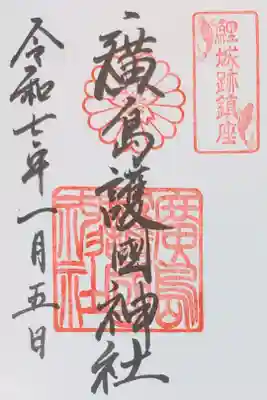 鯉城跡鎮座
廣島護國神社
令和七年一月五日
廣島護國神社